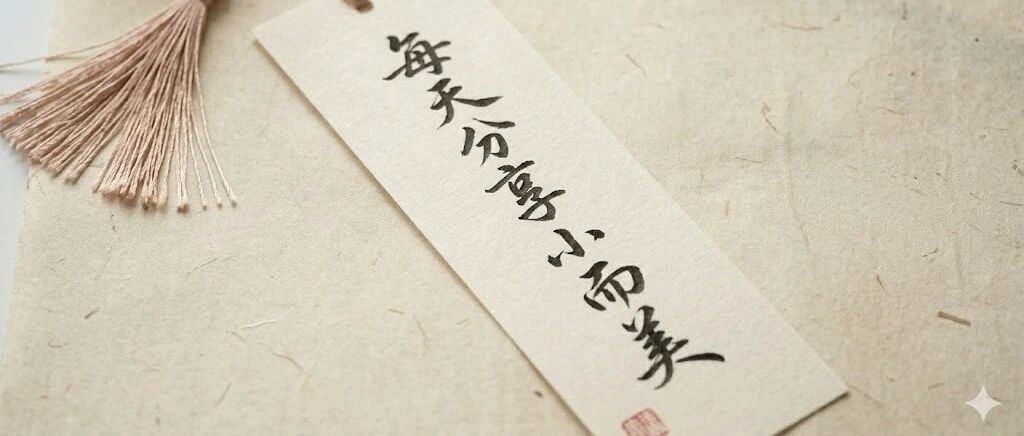 每天分享小而美